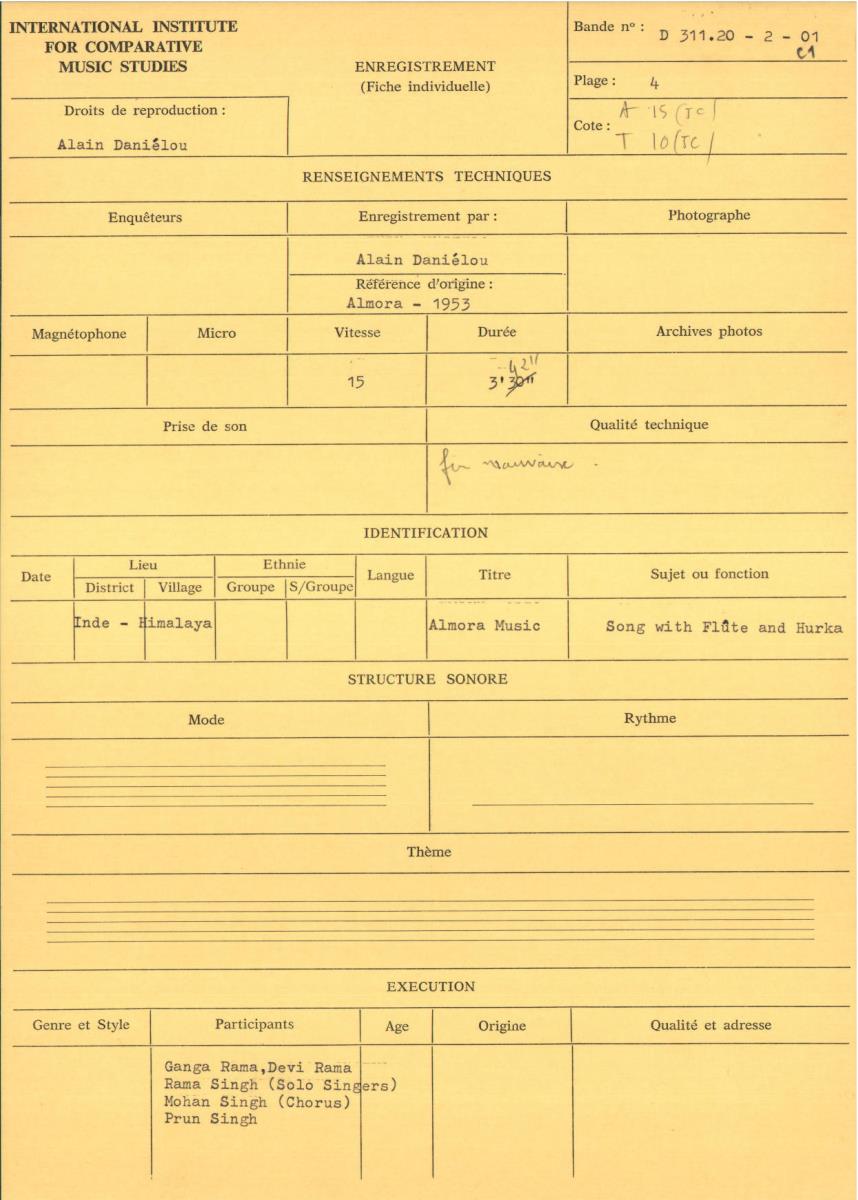 INTERNATIONAL INSTITUTE
FOR COMPARATIVE
MUSIC STUDIES
ENREGISTREMENT
(Fiche individuelle)
Bande nº : D 311.20 - 2 - 01
C1
Plage : 4
Droits de reproduction :
Alain Daniélou
Cote : A 15 (TC)
T 10 (TC)
RENSEIGNEMENTS TECHNIQUES
Enquêteurs
Enregistrement par :
Photographe
Alain Daniélou
Référence d'origine :
Almora - 1953
Magnétophone
Micro
Vitesse
Durée
Archives photos
42"
15
3'30"
Prise de son
Qualité technique
fin mauvaise .
IDENTIFICATION
Date
Lieu
Ethnie
Langue
Titre
Sujet ou fonction
District
Village
Groupe
S/Groupe
Inde - Himalaya
Almora Music
Song with Flûte and Hurka
STRUCTURE SONORE
Mode
Rythme
Thème
EXECUTION
Genre et Style
Participants
Age
Origine
Qualité et adresse
Ganga Rama,Devi Rama
Rama Singh (Solo Singers)
Mohan Singh (Chorus)
Prun Singh